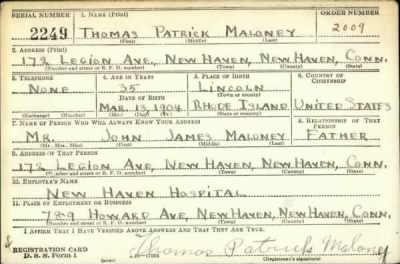 SERIAL NUMBER 1. NAME (Print) ORDER NUMBER
2249 THOMAS PATRICK MALONEY 2009
(First) (Middle) (Last)
2. ADDRESS (Print)
172 LEGION AVE, NEW HAVEN, NEW HAVEN, CONN.
(Number and street or R. F. D. number) (Town) (County) (State)
3. TELEPHONE 4. AGE IN YEARS 5. PLACE OF BIRTH 6. COUNTRY OF CITIZENSHIP
NONE 35 LINCOLN
DATE OF BIRTH (Town or county)
MAR. 13 1904 RHODE ISLAND UNITED STATES
(Exchange) (Number) (Mo.) (Day) (Yr.) (State or country)
7. NAME OF PERSON WHO WILL ALWAYS KNOW YOUR ADDRESS 8. RELATIONSHIP OF THAT PERSON
MR. JOHN JAMES MALONEY FATHER
(Mr., Mrs., Miss) (First) (Middle) (Last)
9. ADDRESS OF THAT PERSON
172 LEGION AVE, NEW HAVEN, NEW HAVEN, CONN.
(Number and street or R. F. D. number) (Town) (County) (State)
10. EMPLOYER'S NAME
NEW HAVEN HOSPITAL
11. PLACE OF EMPLOYMENT OR BUSINESS
789 HOWARD AVE, NEW HAVEN, NEW HAVEN, CONN.
(Number and street or R. F. D. number) (Town) (County) (State)
I AFFIRM THAT I HAVE VERIFIED ABOVE ANSWERS AND THAT THEY ARE TRUE.
REGISTRATION CARD
D. S. S. Form 1 Thomas Patrick Maloney
(Registrant's signature)